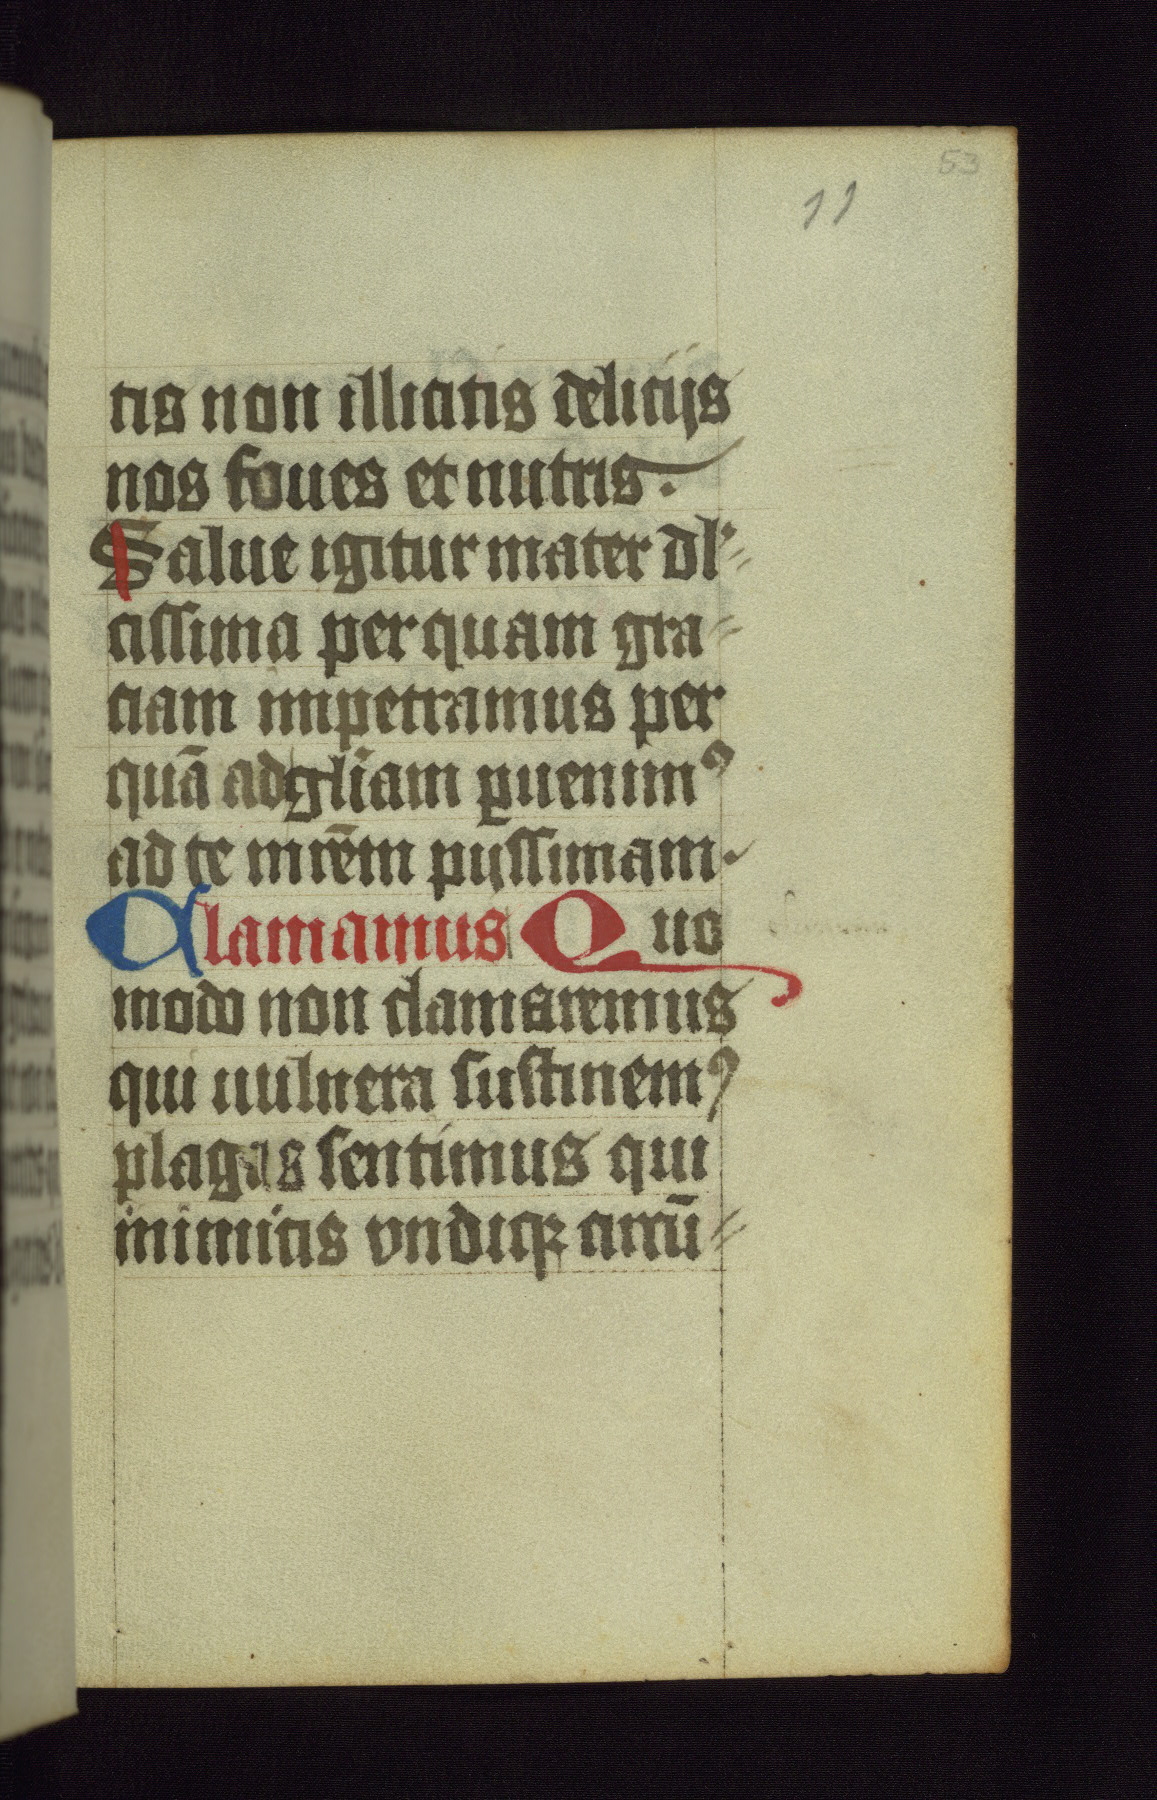 53
11
tis non illicitis delicijs
nos foues et nutris.
Salue igitur mater dl'=
cissima per quam gra=
ciam impetramus per
quā ad gl'iam ꝑuenimꝰ
ad te mrēm pijssimam.
Clamamus Quo
modo non clamaremus
qui uulnera sustinemꝰ
plagas sentimus qui
inimicis vndiqꝫ circū=